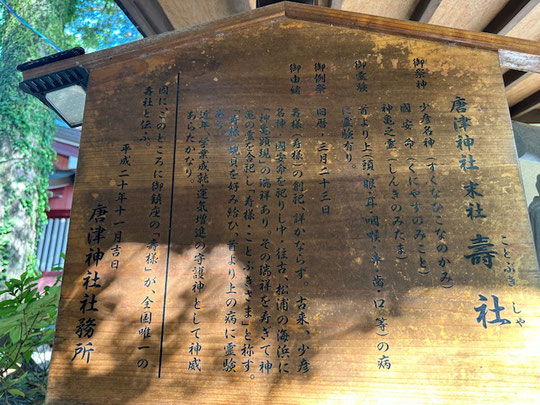 唐津神社 末社 壽社
ことぶき しゃ
御祭神 少彦名神(すくなひこなのかみ)
國安命(くにやすのみこと)
神亀之霊(しんきのみたま)
御霊験 首より上(頭・眼・耳・咽喉・鼻・歯・口等)の病
に霊験有り。
御例祭 旧暦・三月二十三日
御由緒 寿様(寿様)の創祀、詳かならず。古来、少彦
名神・國安命を祀りし中・往古、松浦の海浜に
「神亀頭現」の瑞祥あり、その瑞祥を寿ぎて神
亀の霊を合祀し「寿様・ことぶきさま」と称す。
「寿様」鮑貝を好み給ひ、首より上の病に霊験
あり。
近年・学業成就・運気増進の守護神として神威
あらたかなり。
因に、このところに御鎮座の「寿様」が、全国唯一の
寿社と伝ふ。
平成二十年十一月吉日
唐津神社社務所